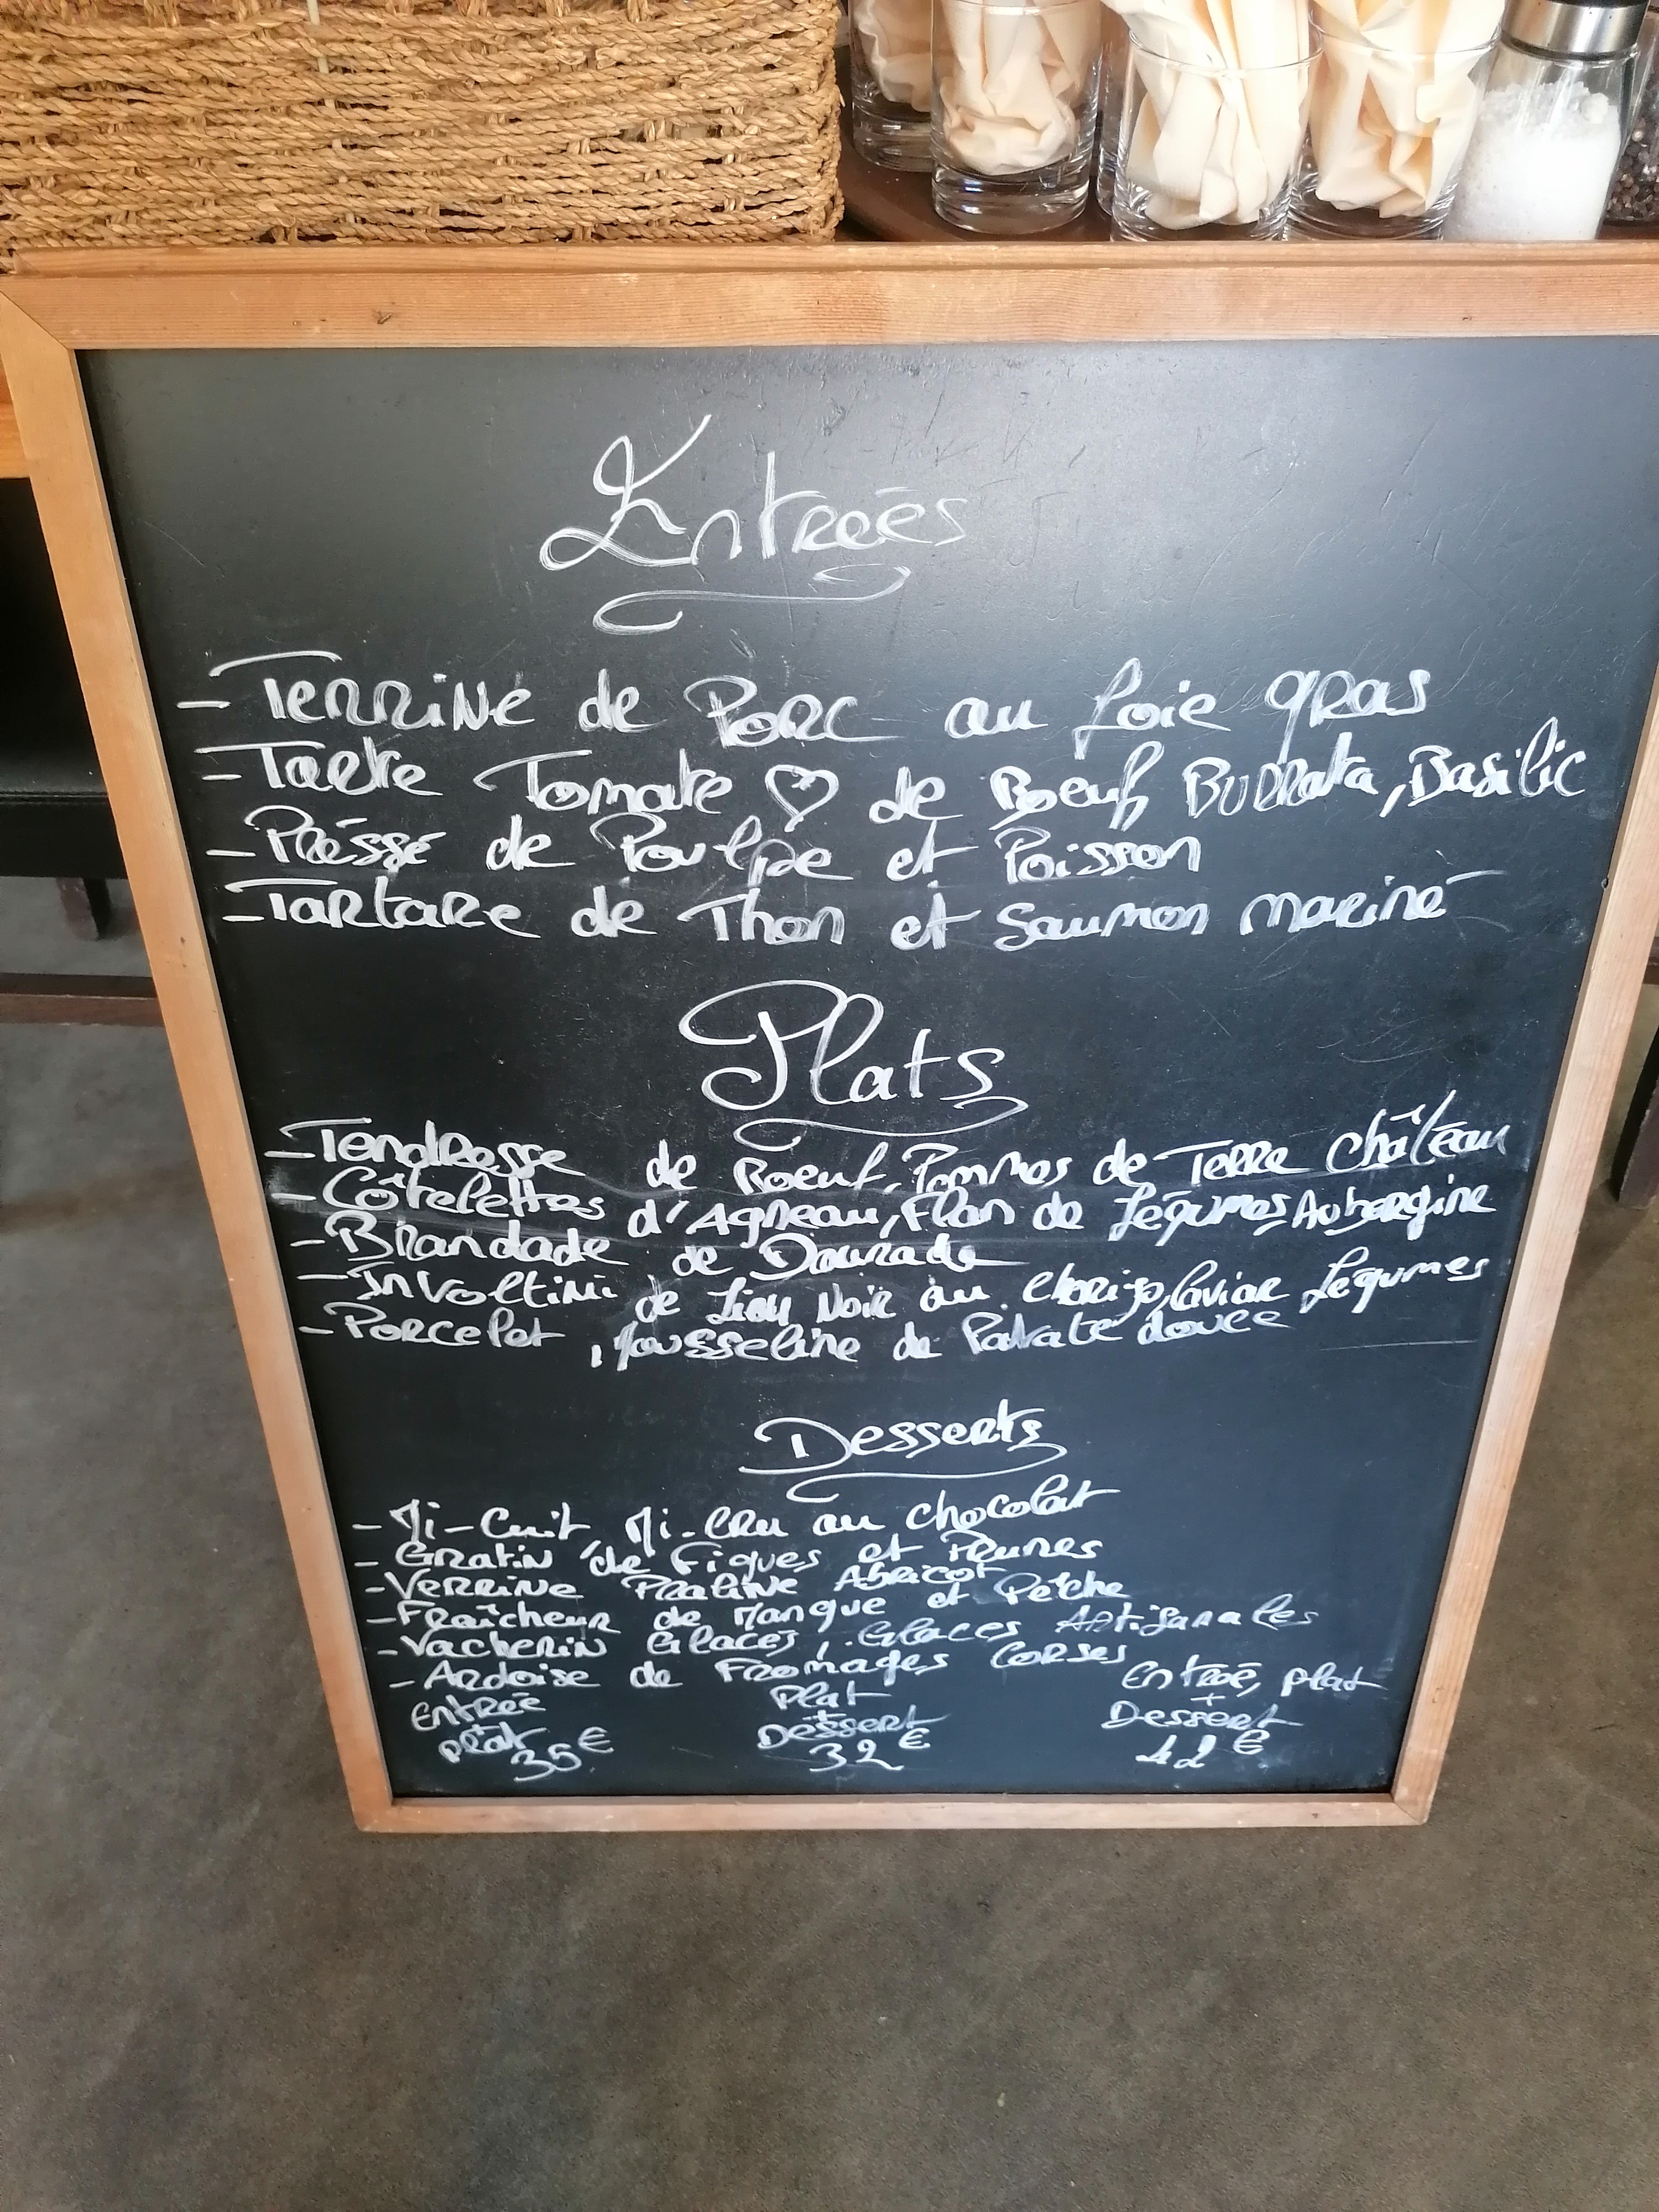 Entrées
- Terrine de Porc au foie gras
- Tarte Tomate ♡ de Boeuf Burrata, Basilic
- Préssé de Poulpe et Poisson
- Tartare de Thon et Saumon mariné
Plats
- Tendresse de Boeuf, Pommes de Terre Château
- Côtelettes d'Agneau, Flan de Légumes, Aubergine
- Brandade de Daurade
- Involtini de Lieu Noir au Chorizo, Caviar Légumes
- Porcelet, Mousseline de Patate douce
Desserts
- Mi-Cuit, Mi-Cru au chocolat
- Gratin de Figues et Prunes
- Verrine Praliné Abricot
- Fraîcheur de Mangue et Pêche
- Vacherin Glacés, Glaces Artisanales
- Ardoise de Fromages Corses
Entrée
plat
35€
Plat
+
Dessert
32€
Entrée, plat
+
Dessert
42€